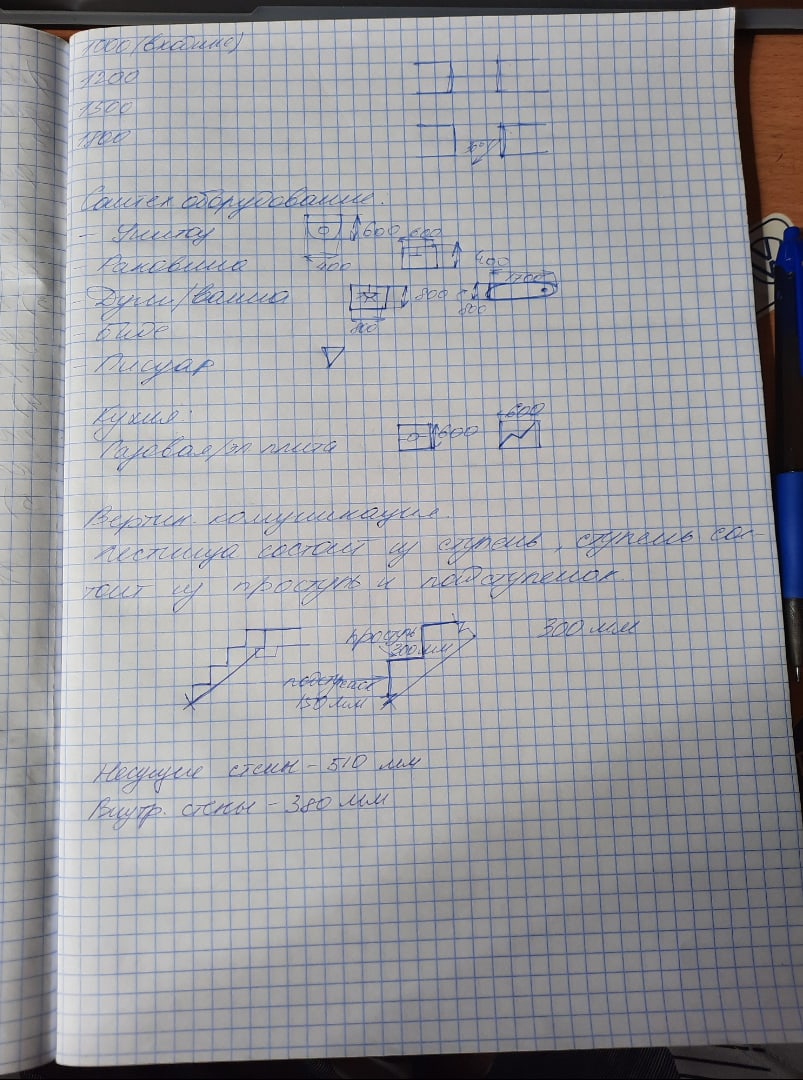 1000 (входные)
1200
1500
1800
30°
Сантех оборудование:
- Унитаз 600 600
400
- Раковина 400
1700
- Душ/ванна 800 800
800
- Биде
- Писуар
Кухня:
Газовая/эл плита 600 600
Вертик. комуникация.
Лестница состоит из ступень, ступень сос-
тоит из проступь и подступенок.
проступь 300 мм
300 мм
подступенок
150 мм
Несущие стены - 510 мм
Внутр. стены - 380 мм